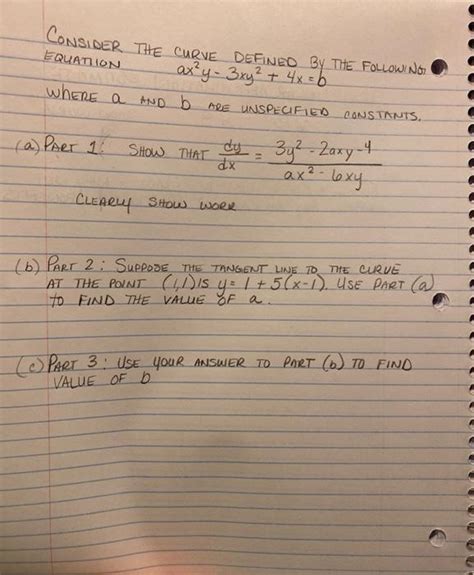 CONSIDER THE CURVE DEFINED BY THE FOLLOWING
EQUATION ax²y - 3xy² + 4x = b
WHERE a AND b ARE UNSPECIFIED CONSTANTS.
(a) PART 1: SHOW THAT dy/dx = (3y² - 2axy - 4)/(ax² - 6xy)
CLEARLY SHOW WORK
(b) PART 2: SUPPOSE THE TANGENT LINE TO THE CURVE
AT THE POINT (1,1) IS y = 1 + 5(x-1). USE PART (a)
TO FIND THE VALUE OF a.
(c) PART 3: USE YOUR ANSWER TO PART (b) TO FIND
VALUE OF b